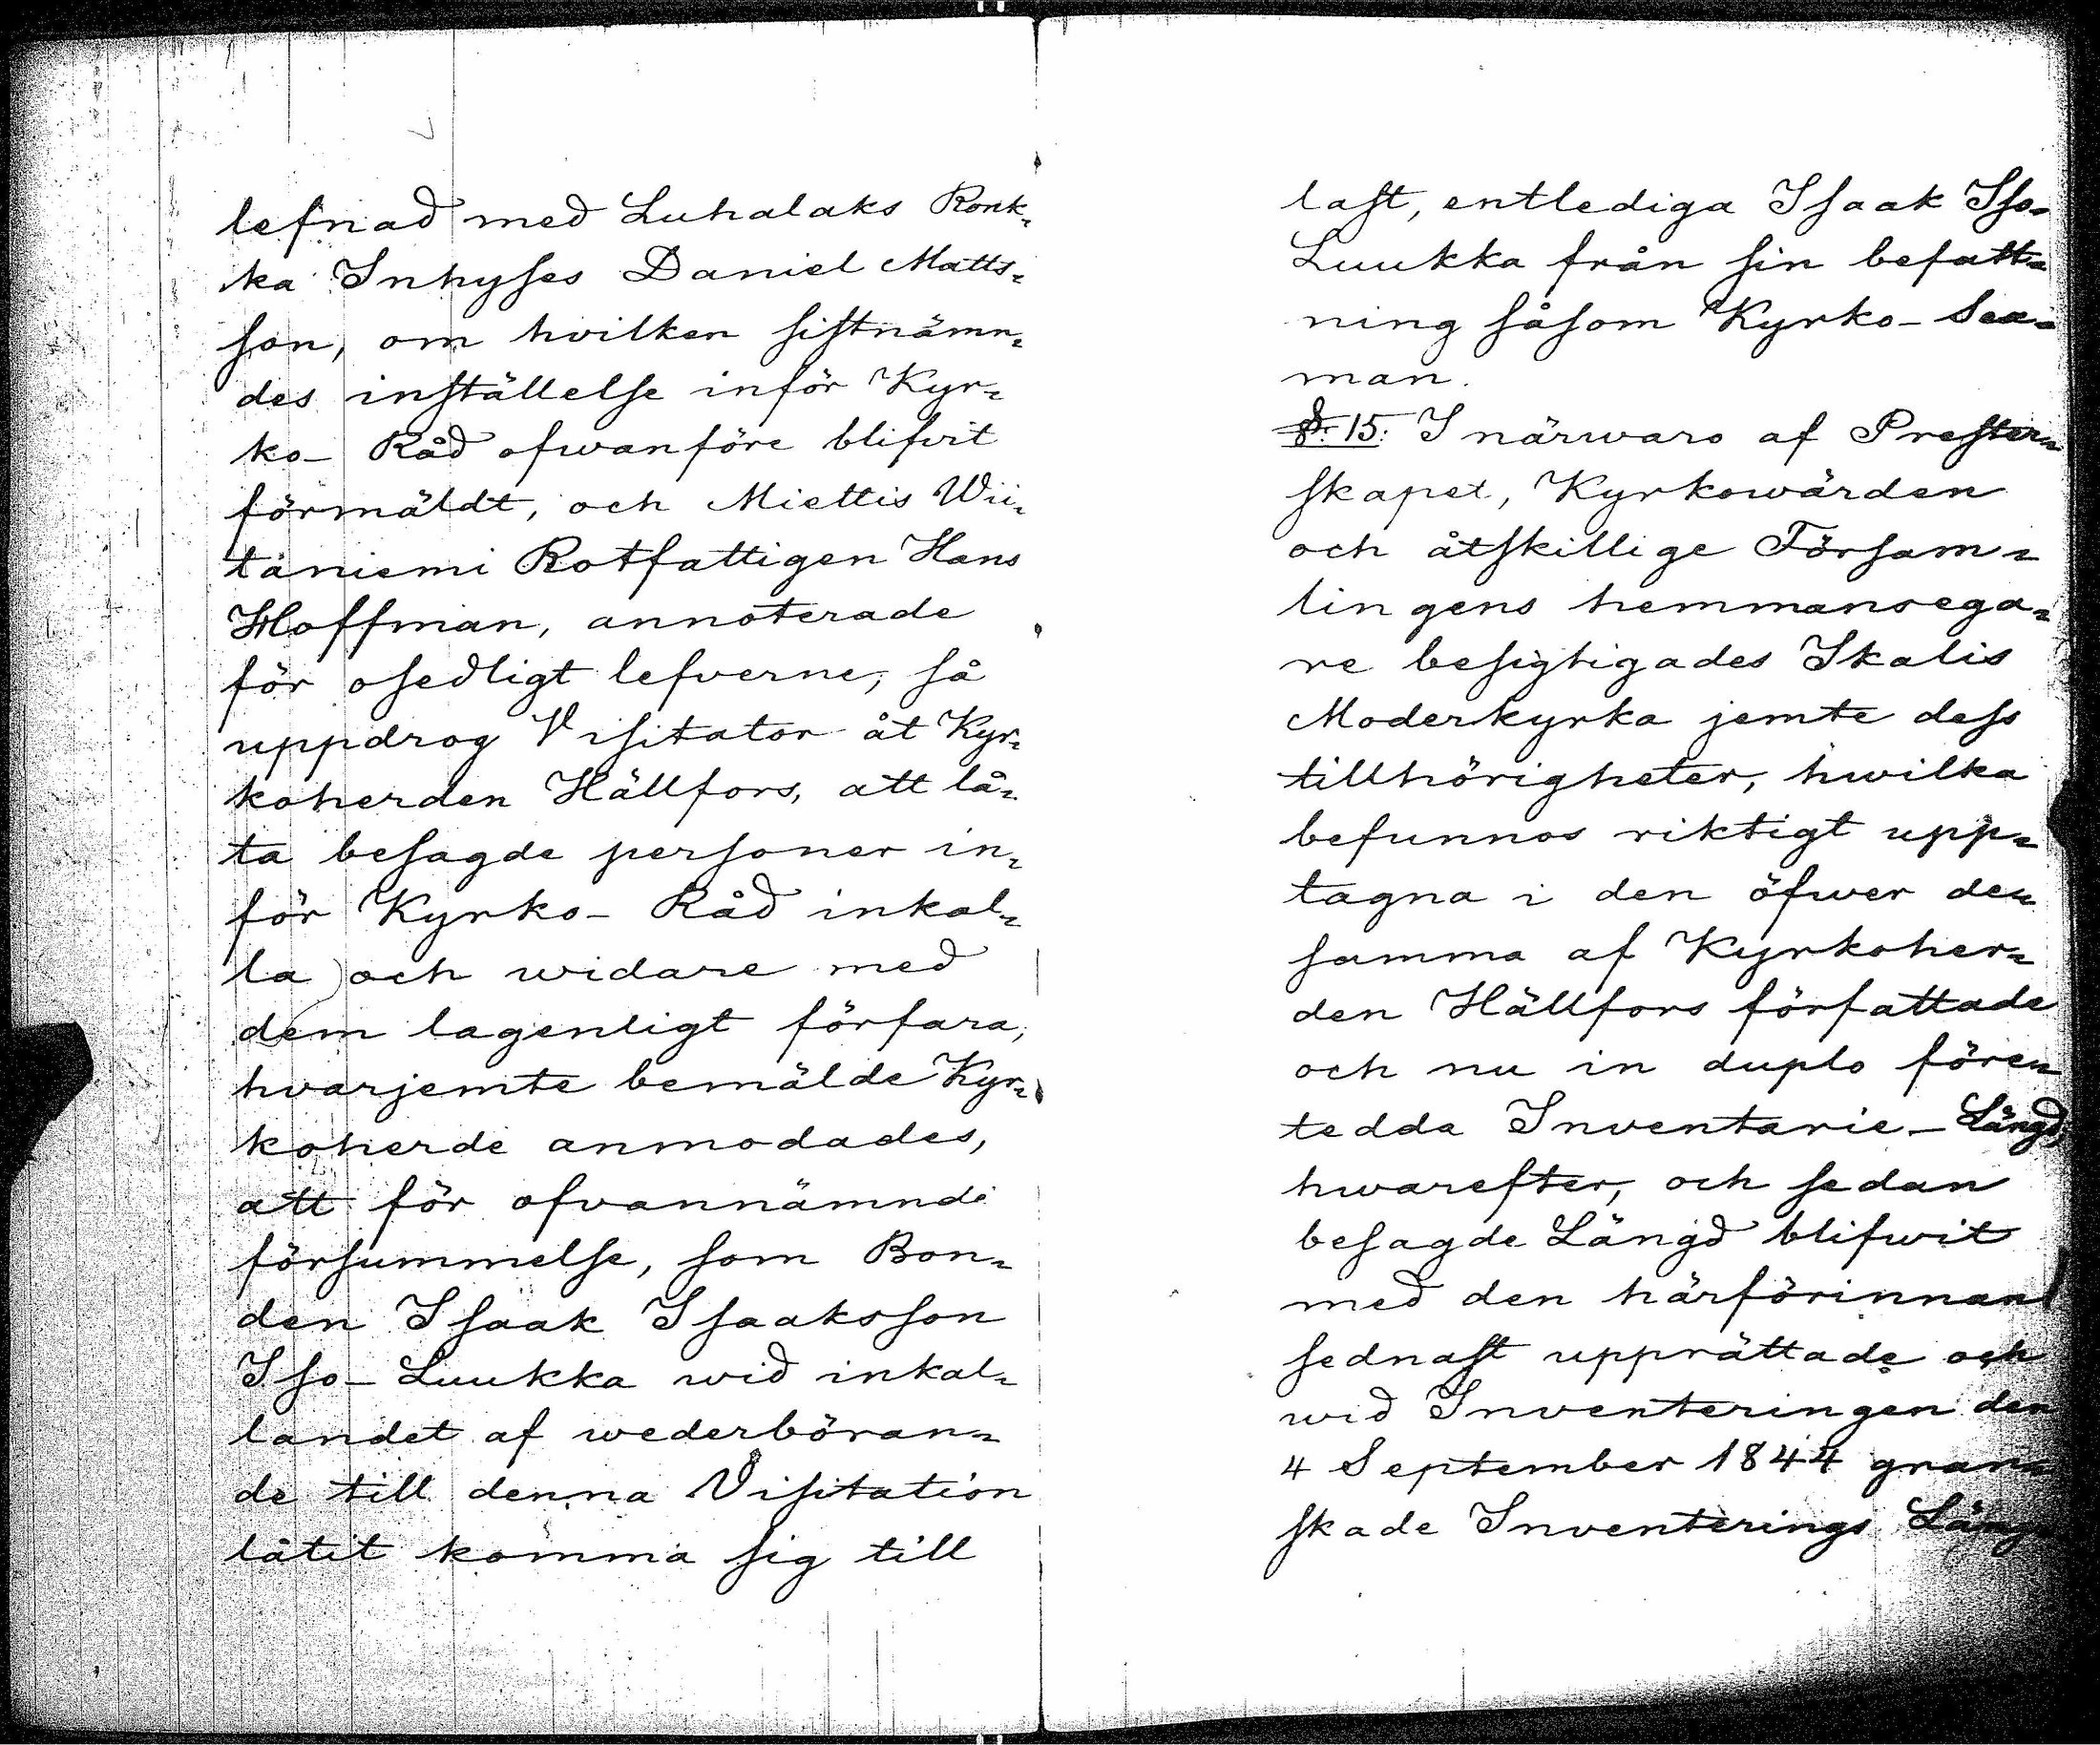 lefnad med Luhalaks Ronk-
ka Inhyses Daniel Matts-
son, om hvilken sistnämn-
des inställelse inför Kyr-
ko- Råd ofwanföre blifvit
förmäldt, och Miettis Wii-
täniemi Rotfattigen Hans
Hoffman, annoterade
för osedligt lefverne, så
uppdrog Visitator åt Kyr-
koherden Hällfors, att lå-
ta besagde personer in-
för Kyrko- Råd inkal-
la och widare med
dem lagenligt förfara,
hvarjemte bemälde Kyr-
koherde anmodades,
att för ofvannämnde
försummelse, som Bon-
den Isaak Isaaksson
Iso- Luukka wid inkal-
landet af wederböran-
de till denna Visitation
låtit komma sig till
last, entlediga Isaak Iso-
Luukka från sin befatt-
ning såsom Kyrko- Sex-
man.
§. 15: I närwaro af Prester-
skapet, Kyrkowärden
och åtskillige Försam-
lingens hemmansega-
re besigtigades Ikalis
Moderkyrka jemte dess
tillhörigheter, hwilka
befunnos riktigt upp-
tagna i den öfwer den
samma af Kyrkoher-
den Hällfors författade
och nu in duplo före-
tedda Inventarie- Längd,
hwarefter, och sedan
besagde Längd blifwit
med den härförinnan
sednast upprättade och
wid Inventeringen den
4 September 1844 gran-
skade Inventerings Längd